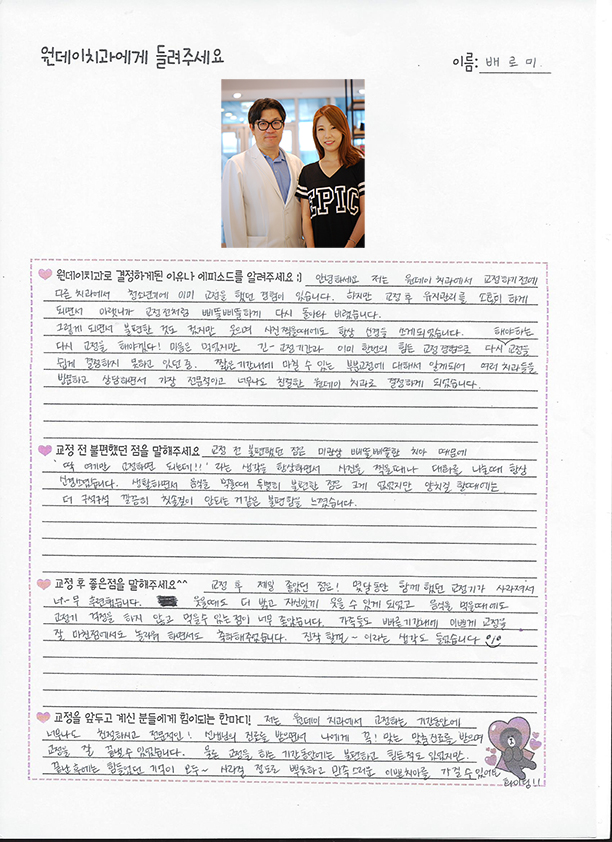 원데이치과에게 들려주세요
이름: 배르미.
EPIC
원데이치과로 결정하게된 이유나 에피소드를 알려주세요 :) 안녕하세요 저는 원데이치과에서 교정하기전에
다른 치과에서 청소년기에 이미 교정을 했던 경험이 있습니다. 하지만 교정 후 유지관리를 소홀히 하게
되면서 아랫니가 교정전처럼 삐뚤삐뚤하게 다시 돌아와 버렸습니다.
그렇게 되면서 불편한 것도 컸지만 웃으며 사진찍을때에도 항상 신경을 쓰게되었습니다. 해야하는
다시 교정을 해야겠다! 마음은 먹었지만 긴~교정기간과 이미 한번의 힘든 교정경험으로 다시 교정을
쉽게 결정하지 못하고 있던 중. 짧은기간내에 마칠 수 있는 부분교정에 대해서 알게되어 여러 치과들을
방문하고 상담하면서 가장 전문적이고 너무나도 친절한 원데이 치과로 결정하게 되었습니다.
교정 전 불편했던 점을 말해주세요 교정 전 불편했던 점은 미관상 삐뚤삐뚤한 치아 때문에
'딱 여기만 교정하면 되는데!!' 라는 생각을 항상하면서 사진을 찍을때나 대화를 나눌때 항상
신경쓰였습니다. 생활하면서 음식을 먹을때 특별히 불편한 점은 크게 없었지만 양치질 할때에는
더 구석구석 깔끔히 칫솔질이 안되는 거같은 불편함을 느꼈습니다.
교정 후 좋은점을 말해주세요^^ 교정 후 제일 좋았던 점은! 몇달동안 함께 했던 교정기가 사라져서
너~무 후련했습니다. 웃을때도 더 밝고 자신있게 웃을 수 있게 되었고 음식을 먹을때에도
교정기 걱정을 하지 않고 먹을수 있는점이 너무 좋았습니다. 가족들도 빠른기간내에 이쁘게 교정을
잘 마친점에서도 놀라워 하면서도 축하해주었습니다. 진작 할껄~ 이라는 생각도 들었습니다
교정을 앞두고 계신 분들에게 힘이되는 한마디! 저는 원데이 치과에서 교정하는 기간동안에
너무나도 친절하시고 전문적인! 선생님의 진료를 받으면서 나에게 꼭! 맞는 맞춤진료를 받으며
교정을 잘 끝낼수 있었습니다. 물론 교정을 하는 기간동안에는 불편하고 힘든적도 있었지만.
끝난 후에는 힘들었던 기억이 모두~ 사라질 정도로 뿌듯하고 만족스러운 이쁜치아를 가질 수 있어요
화이팅!!